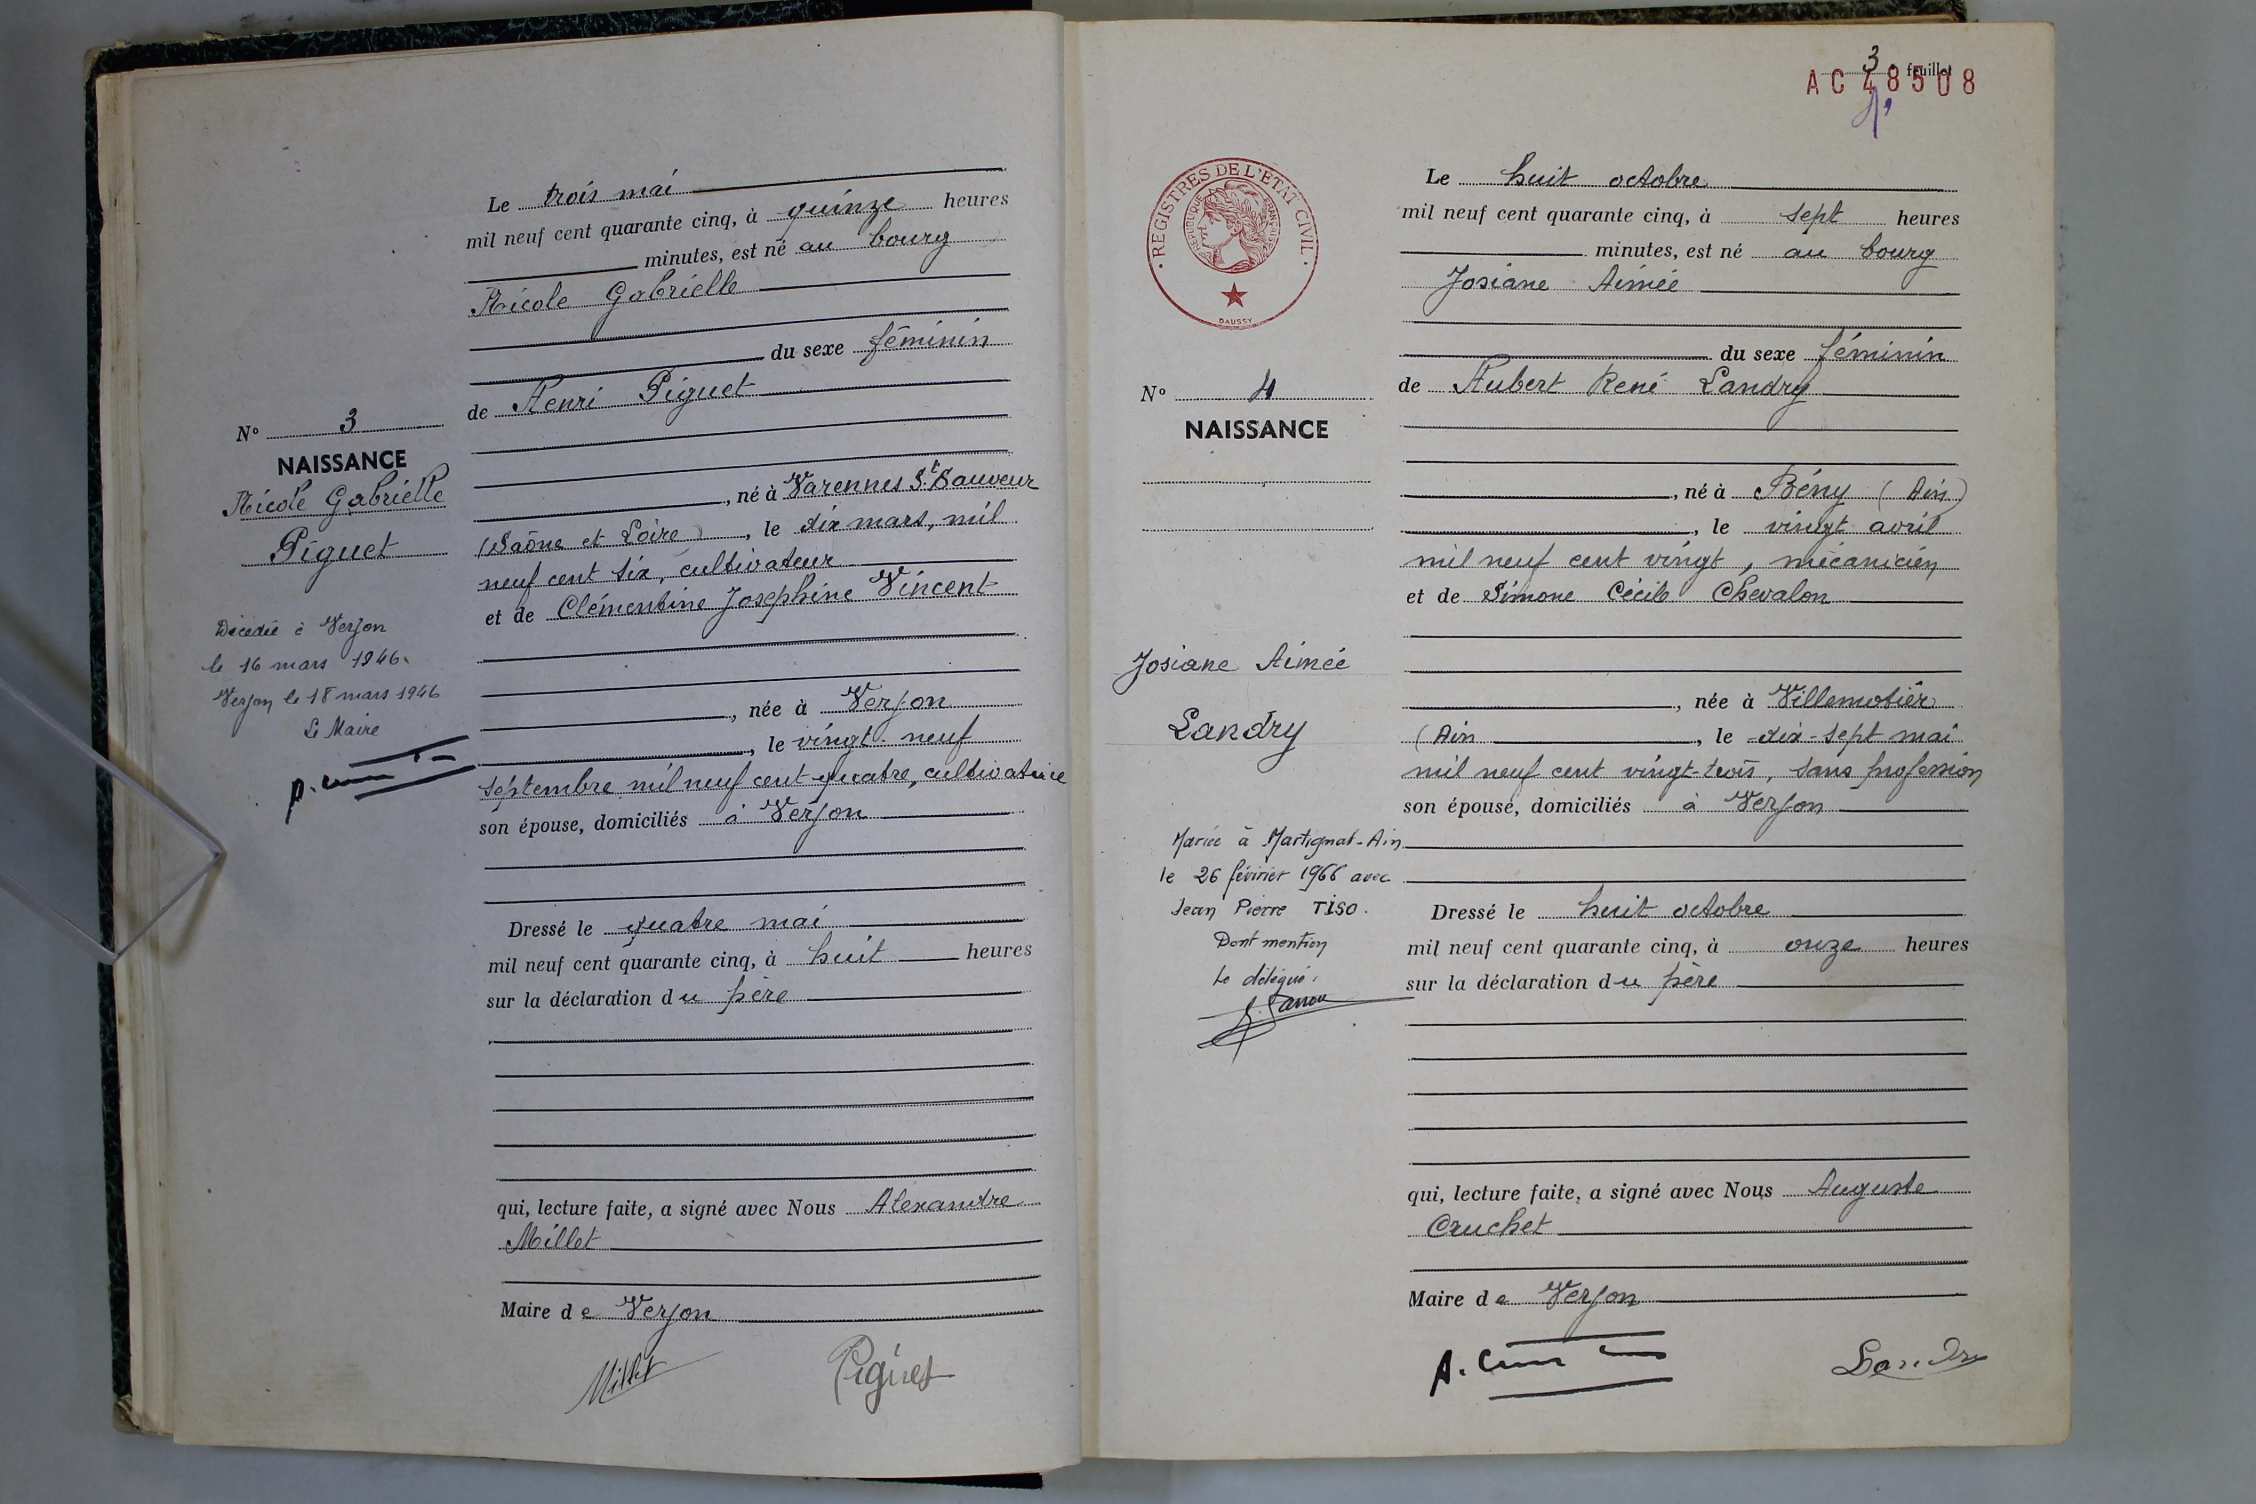 Le trois mai
mil neuf cent quarante cinq, à quinze heures
minutes, est né au bourg
Nicole Gabrielle
du sexe féminin
de Henri Piguet
N° 3
NAISSANCE
Nicole Gabrielle
Piguet
, né à Varennes St Sauveur
(Saône et Loire) , le dix mars, mil
neuf cent six, cultivateur
et de Clémentine Josephine Vincent
Décédée à Verjon
le 16 mars 1946.
Verjon le 18 mars 1946
Le Maire
, née à Verjon
, le vingt-neuf
septembre mil neuf cent quatre, cultivatrice
son épouse, domiciliés à Verjon
Dressé le quatre mai
mil neuf cent quarante cinq, à huit heures
sur la déclaration du père
qui, lecture faite, a signé avec Nous Alexandre
Millet
Maire de Verjon
Millet Piguet
3 feuillet
AC 48508
REGISTRES DE L'ETAT CIVIL
REPUBLIQUE FRANÇAISE
DAUSSY
Le huit octobre
mil neuf cent quarante cinq, à sept heures
minutes, est né au bourg
Josiane Aimée
du sexe féminin
N° 4
NAISSANCE
de Hubert René Landry
, né à Bény (Ain)
, le vingt avril
mil neuf cent vingt, mécanicien
et de Simone Cécile Chevalon
Josiane Aimée
Landry
, née à Villemotier
(Ain , le dix-sept mai
mil neuf cent vingt-trois, sans profession
son épouse, domiciliés à Verjon
Mariée à Martignat-Ain
le 26 février 1966 avec
Jean Pierre TISO.
Dont mention
Le délégué:
Dressé le huit octobre
mil neuf cent quarante cinq, à onze heures
sur la déclaration du père
qui, lecture faite, a signé avec Nous Auguste
Cruchet
Maire de Verjon
Landry